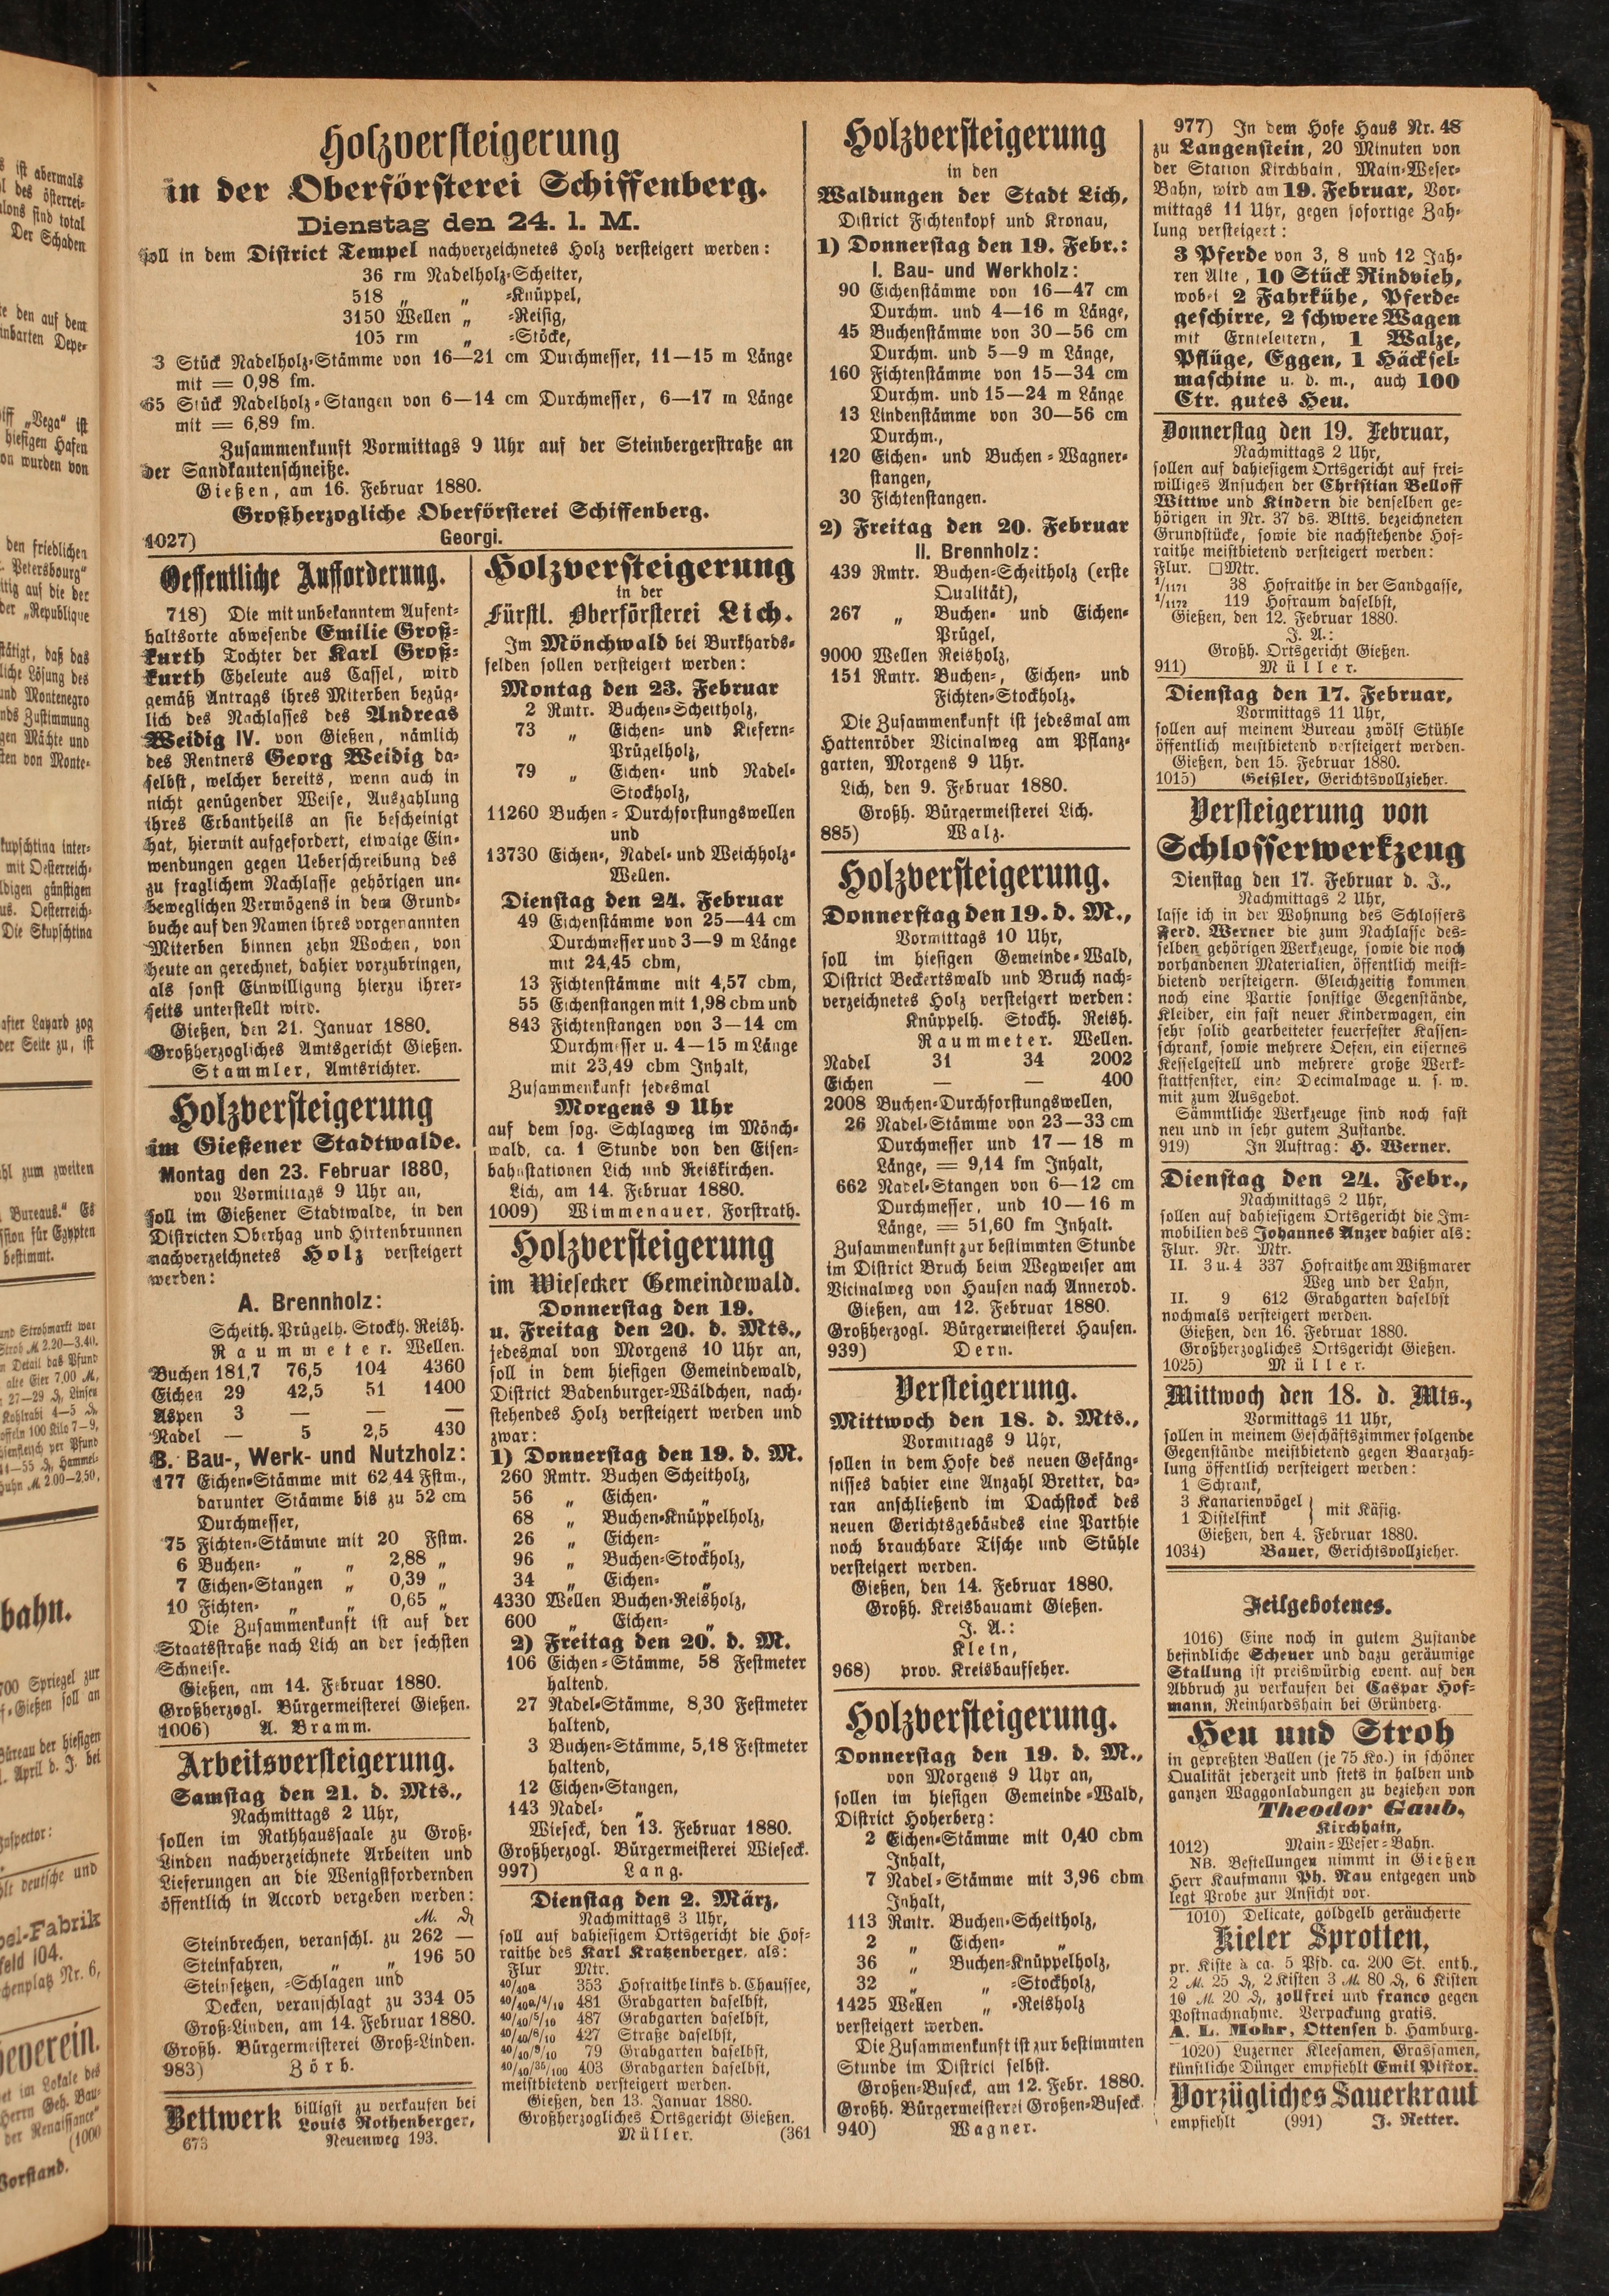 Holzversteigerung
in der Oberförsterei Schiffenberg.
Dienstag den 24. l. M.
soll in dem District Tempel nachverzeichnetes Holz versteigert werden:
36 rm Nadelholz-Scheiter,
518 „ „ -Knüppel,
3150 Wellen „ -Reisig,
105 rm „ -Stöcke,
3 Stück Nadelholz-Stämme von 16—21 cm Durchmesser, 11—15 m Länge
mit = 0,98 fm.
65 Stück Nadelholz-Stangen von 6—14 cm Durchmesser, 6—17 m Länge
mit = 6,89 fm.
Zusammenkunft Vormittags 9 Uhr auf der Steinbergerstraße an
der Sandkautenschneiße.
Gießen, am 16. Februar 1880.
Großherzogliche Oberförsterei Schiffenberg.
1027) Georgi.
Oeffentliche Aufforderung.
718) Die mit unbekanntem Aufent-
haltsorte abwesende Emilie Groß-
kurth Tochter der Karl Groß-
kurth Eheleute aus Cassel, wird
gemäß Antrags ihres Miterben bezüg-
lich des Nachlasses des Andreas
Weidig IV. von Gießen, nämlich
des Rentners Georg Weidig da-
selbst, welcher bereits, wenn auch in
nicht genügender Weise, Auszahlung
ihres Erbantheils an sie bescheinigt
hat, hiermit aufgefordert, etwaige Ein-
wendungen gegen Ueberschreibung des
zu fraglichem Nachlasse gehörigen un-
beweglichen Vermögens in dem Grund-
buche auf den Namen ihres vorgenannten
Miterben binnen zehn Wochen, von
heute an gerechnet, dahier vorzubringen,
als sonst Einwilligung hierzu ihrer-
seits unterstellt wird.
Gießen, den 21. Januar 1880.
Großherzogliches Amtsgericht Gießen.
Stammler, Amtsrichter.
Holzversteigerung
im Gießener Stadtwalde.
Montag den 23. Februar 1880,
von Vormittags 9 Uhr an,
soll im Gießener Stadtwalde, in den
Districten Oberhag und Hirtenbrunnen
nachverzeichnetes Holz versteigert
werden:
A. Brennholz:
Scheith. Prügelh. Stockh. Reish.
Raummeter. Wellen.
Buchen 181,7 76,5 104 4360
Eichen 29 42,5 51 1400
Aspen 3 — — —
Nadel — 5 2,5 430
B. Bau-, Werk- und Nutzholz:
177 Eichen-Stämme mit 62,44 Fstm.,
darunter Stämme bis zu 52 cm
Durchmesser,
75 Fichten-Stämme mit 20 Fstm.
6 Buchen- „ „ 2,88 „
7 Eichen-Stangen „ 0,39 „
10 Fichten- „ „ 0,65 „
Die Zusammenkunft ist auf der
Staatsstraße nach Lich an der sechsten
Schneise.
Gießen, am 14. Februar 1880.
Großherzogl. Bürgermeisterei Gießen.
1006) A. Bramm.
Arbeitsversteigerung.
Samstag den 21. d. Mts.,
Nachmittags 2 Uhr,
sollen im Rathhaussaale zu Groß-
Linden nachverzeichnete Arbeiten und
Lieferungen an die Wenigstfordernden
öffentlich in Accord vergeben werden:
M. ₰
Steinbrechen, veranschl. zu 262 —
Steinfahren, „ „ 196 50
Steinsetzen, -Schlagen und
Decken, veranschlagt zu 334 05
Groß-Linden, am 14. Februar 1880.
Großh. Bürgermeisterei Groß-Linden.
983) Zörb.
Bettwerk billigst zu verkaufen bei
Louis Rothenberger,
673 Neuenweg 193.
Holzversteigerung
in der
Fürstl. Oberförsterei Lich.
Im Mönchwald bei Burkhards-
felden sollen versteigert werden:
Montag den 23. Februar
2 Rmtr. Buchen-Scheitholz,
73 „ Eichen- und Kiefern-
Prügelholz,
79 „ Eichen- und Nadel-
Stockholz,
11260 Buchen-Durchforstungswellen
und
13730 Eichen-, Nadel- und Weichholz-
Wellen.
Dienstag den 24. Februar
49 Eichenstämme von 25—44 cm
Durchmesser und 3—9 m Länge
mit 24,45 cbm,
13 Fichtenstämme mit 4,57 cbm,
55 Eichenstangen mit 1,98 cbm und
843 Fichtenstangen von 3—14 cm
Durchmesser u. 4—15 m Länge
mit 23,49 cbm Inhalt,
Zusammenkunft jedesmal
Morgens 9 Uhr
auf dem sog. Schlagweg im Mönch-
wald, ca. 1 Stunde von den Eisen-
bahnstationen Lich und Reiskirchen.
Lich, am 14. Februar 1880.
1009) Wimmenauer, Forstrath.
Holzversteigerung
im Wiesecker Gemeindewald.
Donnerstag den 19.
u. Freitag den 20. d. Mts.,
jedesmal von Morgens 10 Uhr an,
soll in dem hiesigen Gemeindewald,
District Badenburger-Wäldchen, nach-
stehendes Holz versteigert werden und
zwar:
1) Donnerstag den 19. d. M.
260 Rmtr. Buchen Scheitholz,
56 „ Eichen- „
68 „ Buchen-Knüppelholz,
26 „ Eichen- „
96 „ Buchen-Stockholz,
34 „ Eichen- „
4330 Wellen Buchen-Reisholz,
600 „ Eichen- „
2) Freitag den 20. d. M.
106 Eichen-Stämme, 58 Festmeter
haltend,
27 Nadel-Stämme, 8,30 Festmeter
haltend,
3 Buchen-Stämme, 5,18 Festmeter
haltend,
12 Eichen-Stangen,
143 Nadel- „
Wieseck, den 13. Februar 1880.
Großherzogl. Bürgermeisterei Wieseck.
997) Lang.
Dienstag den 2. März,
Nachmittags 3 Uhr,
soll auf dahiesigem Ortsgericht die Hof-
raithe des Karl Kratzenberger, als:
Flur Mtr.
40/40a 353 Hofraithe links d. Chaussee,
40/40a/4/10 481 Grabgarten daselbst,
40/40/5/10 487 Grabgarten daselbst,
40/40/8/10 427 Straße daselbst,
40/40/9/10 79 Grabgarten daselbst,
40/40/35/100 403 Grabgarten daselbst,
meistbietend versteigert werden.
Gießen, den 13. Januar 1880.
Großherzogliches Ortsgericht Gießen.
Müller. (361
Holzversteigerung
in den
Waldungen der Stadt Lich,
District Fichtenkopf und Kronau,
1) Donnerstag den 19. Febr.:
I. Bau- und Werkholz:
90 Eichenstämme von 16—47 cm
Durchm. und 4—16 m Länge,
45 Buchenstämme von 30—56 cm
Durchm. und 5—9 m Länge,
160 Fichtenstämme von 15—34 cm
Durchm. und 15—24 m Länge
13 Lindenstämme von 30—56 cm
Durchm.,
120 Eichen- und Buchen-Wagner-
stangen,
30 Fichtenstangen.
2) Freitag den 20. Februar
II. Brennholz:
439 Rmtr. Buchen-Scheitholz (erste
Qualität),
267 „ Buchen- und Eichen-
Prügel,
9000 Wellen Reisholz,
151 Rmtr. Buchen-, Eichen- und
Fichten-Stockholz.
Die Zusammenkunft ist jedesmal am
Hattenröder Vicinalweg am Pflanz-
garten, Morgens 9 Uhr.
Lich, den 9. Februar 1880.
Großh. Bürgermeisterei Lich.
885) Walz.
Holzversteigerung.
Donnerstag den 19. d. M.,
Vormittags 10 Uhr,
soll im hiesigen Gemeinde-Wald,
District Beckertswald und Bruch nach-
verzeichnetes Holz versteigert werden:
Knüppelh. Stockh. Reish.
Raummeter. Wellen.
Nadel 31 34 2002
Eichen — — 400
2008 Buchen-Durchforstungswellen,
26 Nadel-Stämme von 23—33 cm
Durchmesser und 17—18 m
Länge, = 9,14 fm Inhalt,
662 Nadel-Stangen von 6—12 cm
Durchmesser, und 10—16 m
Länge, = 51,60 fm Inhalt.
Zusammenkunft zur bestimmten Stunde
im District Bruch beim Wegweiser am
Vicinalweg von Hausen nach Annerod.
Gießen, am 12. Februar 1880.
Großherzogl. Bürgermeisterei Hausen.
939) Dern.
Versteigerung.
Mittwoch den 18. d. Mts.,
Vormittags 9 Uhr,
sollen in dem Hofe des neuen Gefäng-
nisses dahier eine Anzahl Bretter, da-
ran anschließend im Dachstock des
neuen Gerichtsgebäudes eine Parthie
noch brauchbare Tische und Stühle
versteigert werden.
Gießen, den 14. Februar 1880.
Großh. Kreisbauamt Gießen.
J. A.:
Klein,
968) prov. Kreisbaufseher.
Holzversteigerung.
Donnerstag den 19. d. M.,
von Morgens 9 Uhr an,
sollen im hiesigen Gemeinde-Wald,
District Hoherberg:
2 Eichen-Stämme mit 0,40 cbm
Inhalt,
7 Nadel-Stämme mit 3,96 cbm
Inhalt,
113 Rmtr. Buchen-Scheitholz,
2 „ Eichen- „
36 „ Buchen-Knüppelholz,
32 „ „ -Stockholz,
1425 Wellen „ -Reisholz
versteigert werden.
Die Zusammenkunft ist zur bestimmten
Stunde im District selbst.
Großen-Buseck, am 12. Febr. 1880.
Großh. Bürgermeisterei Großen-Buseck.
940) Wagner.
977) In dem Hofe Haus Nr. 48
zu Langenstein, 20 Minuten von
der Station Kirchhain, Main-Weser-
Bahn, wird am 19. Februar, Vor-
mittags 11 Uhr, gegen sofortige Zah-
lung versteigert:
3 Pferde von 3, 8 und 12 Jah-
ren Alte, 10 Stück Rindvieh,
wobei 2 Fahrkühe, Pferde-
geschirre, 2 schwere Wagen
mit Ernteleitern, 1 Walze,
Pflüge, Eggen, 1 Häcksel-
maschine u. d. m., auch 100
Ctr. gutes Heu.
Donnerstag den 19. Februar,
Nachmittags 2 Uhr,
sollen auf dahiesigem Ortsgericht auf frei-
williges Ansuchen der Christian Belloff
Wittwe und Kindern die denselben ge-
hörigen in Nr. 37 ds. Bltts. bezeichneten
Grundstücke, sowie die nachstehende Hof-
raithe meistbietend versteigert werden:
Flur. □Mtr.
1/1171 38 Hofraithe in der Sandgasse,
1/1172 119 Hofraum daselbst,
Gießen, den 12. Februar 1880.
J. A.:
Großh. Ortsgericht Gießen.
911) Müller.
Dienstag den 17. Februar,
Vormittags 11 Uhr,
sollen auf meinem Bureau zwölf Stühle
öffentlich meistbietend versteigert werden.
Gießen, den 15. Februar 1880.
1015) Geißler, Gerichtsvollzieher.
Versteigerung von
Schlosserwerkzeug
Dienstag den 17. Februar d. J.,
Nachmittags 2 Uhr,
lasse ich in der Wohnung des Schlossers
Ferd. Werner die zum Nachlasse des-
selben gehörigen Werkzeuge, sowie die noch
vorhandenen Materialien, öffentlich meist-
bietend versteigern. Gleichzeitig kommen
noch eine Partie sonstige Gegenstände,
Kleider, ein fast neuer Kinderwagen, ein
sehr solid gearbeiteter feuerfester Kassen-
schrank, sowie mehrere Oefen, ein eisernes
Kesselgestell und mehrere große Werk-
stattfenster, eine Decimalwage u. s. w.
mit zum Ausgebot.
Sämmtliche Werkzeuge sind noch fast
neu und in sehr gutem Zustande.
919) In Auftrag: H. Werner.
Dienstag den 24. Febr.,
Nachmittags 2 Uhr,
sollen auf dahiesigem Ortsgericht die Im-
mobilien des Johannes Anzer dahier als:
Flur. Nr. Mtr.
II. 3 u. 4 337 Hofraithe am Wißmarer
Weg und der Lahn,
II. 9 612 Grabgarten daselbst
nochmals versteigert werden.
Gießen, den 16. Februar 1880.
Großherzogliches Ortsgericht Gießen.
1025) Müller.
Mittwoch den 18. d. Mts.,
Vormittags 11 Uhr,
sollen in meinem Geschäftszimmer folgende
Gegenstände meistbietend gegen Baarzah-
lung öffentlich versteigert werden:
1 Schrank,
3 Kanarienvögel } mit Käfig.
1 Distelfink
Gießen, den 4. Februar 1880.
1034) Bauer, Gerichtsvollzieher.
Feilgebotenes.
1016) Eine noch in gutem Zustande
befindliche Scheuer und dazu geräumige
Stallung ist preiswürdig event. auf den
Abbruch zu verkaufen bei Caspar Hof-
mann, Reinhardshain bei Grünberg.
Heu und Stroh
in gepreßten Ballen (je 75 Ko.) in schöner
Qualität jederzeit und stets in halben und
ganzen Waggonladungen zu beziehen von
Theodor Gaub,
Kirchhain,
1012) Main-Weser-Bahn.
NB. Bestellungen nimmt in Gießen
Herr Kaufmann Ph. Rau entgegen und
legt Probe zur Ansicht vor.
1010) Delicate, goldgelb geräucherte
Kieler Sprotten,
pr. Kiste à ca. 5 Pfd. ca. 200 St. enth.,
2 M. 25 ₰, 2 Kisten 3 M. 80 ₰, 6 Kisten
10 M. 20 ₰, zollfrei und franco gegen
Postnachnahme. Verpackung gratis.
A. L. Mohr, Ottensen b. Hamburg.
1020) Luzerner Kleesamen, Grassamen,
künstliche Dünger empfiehlt Emil Pistor.
Vorzügliches Sauerkraut
empfiehlt (991) J. Retter.